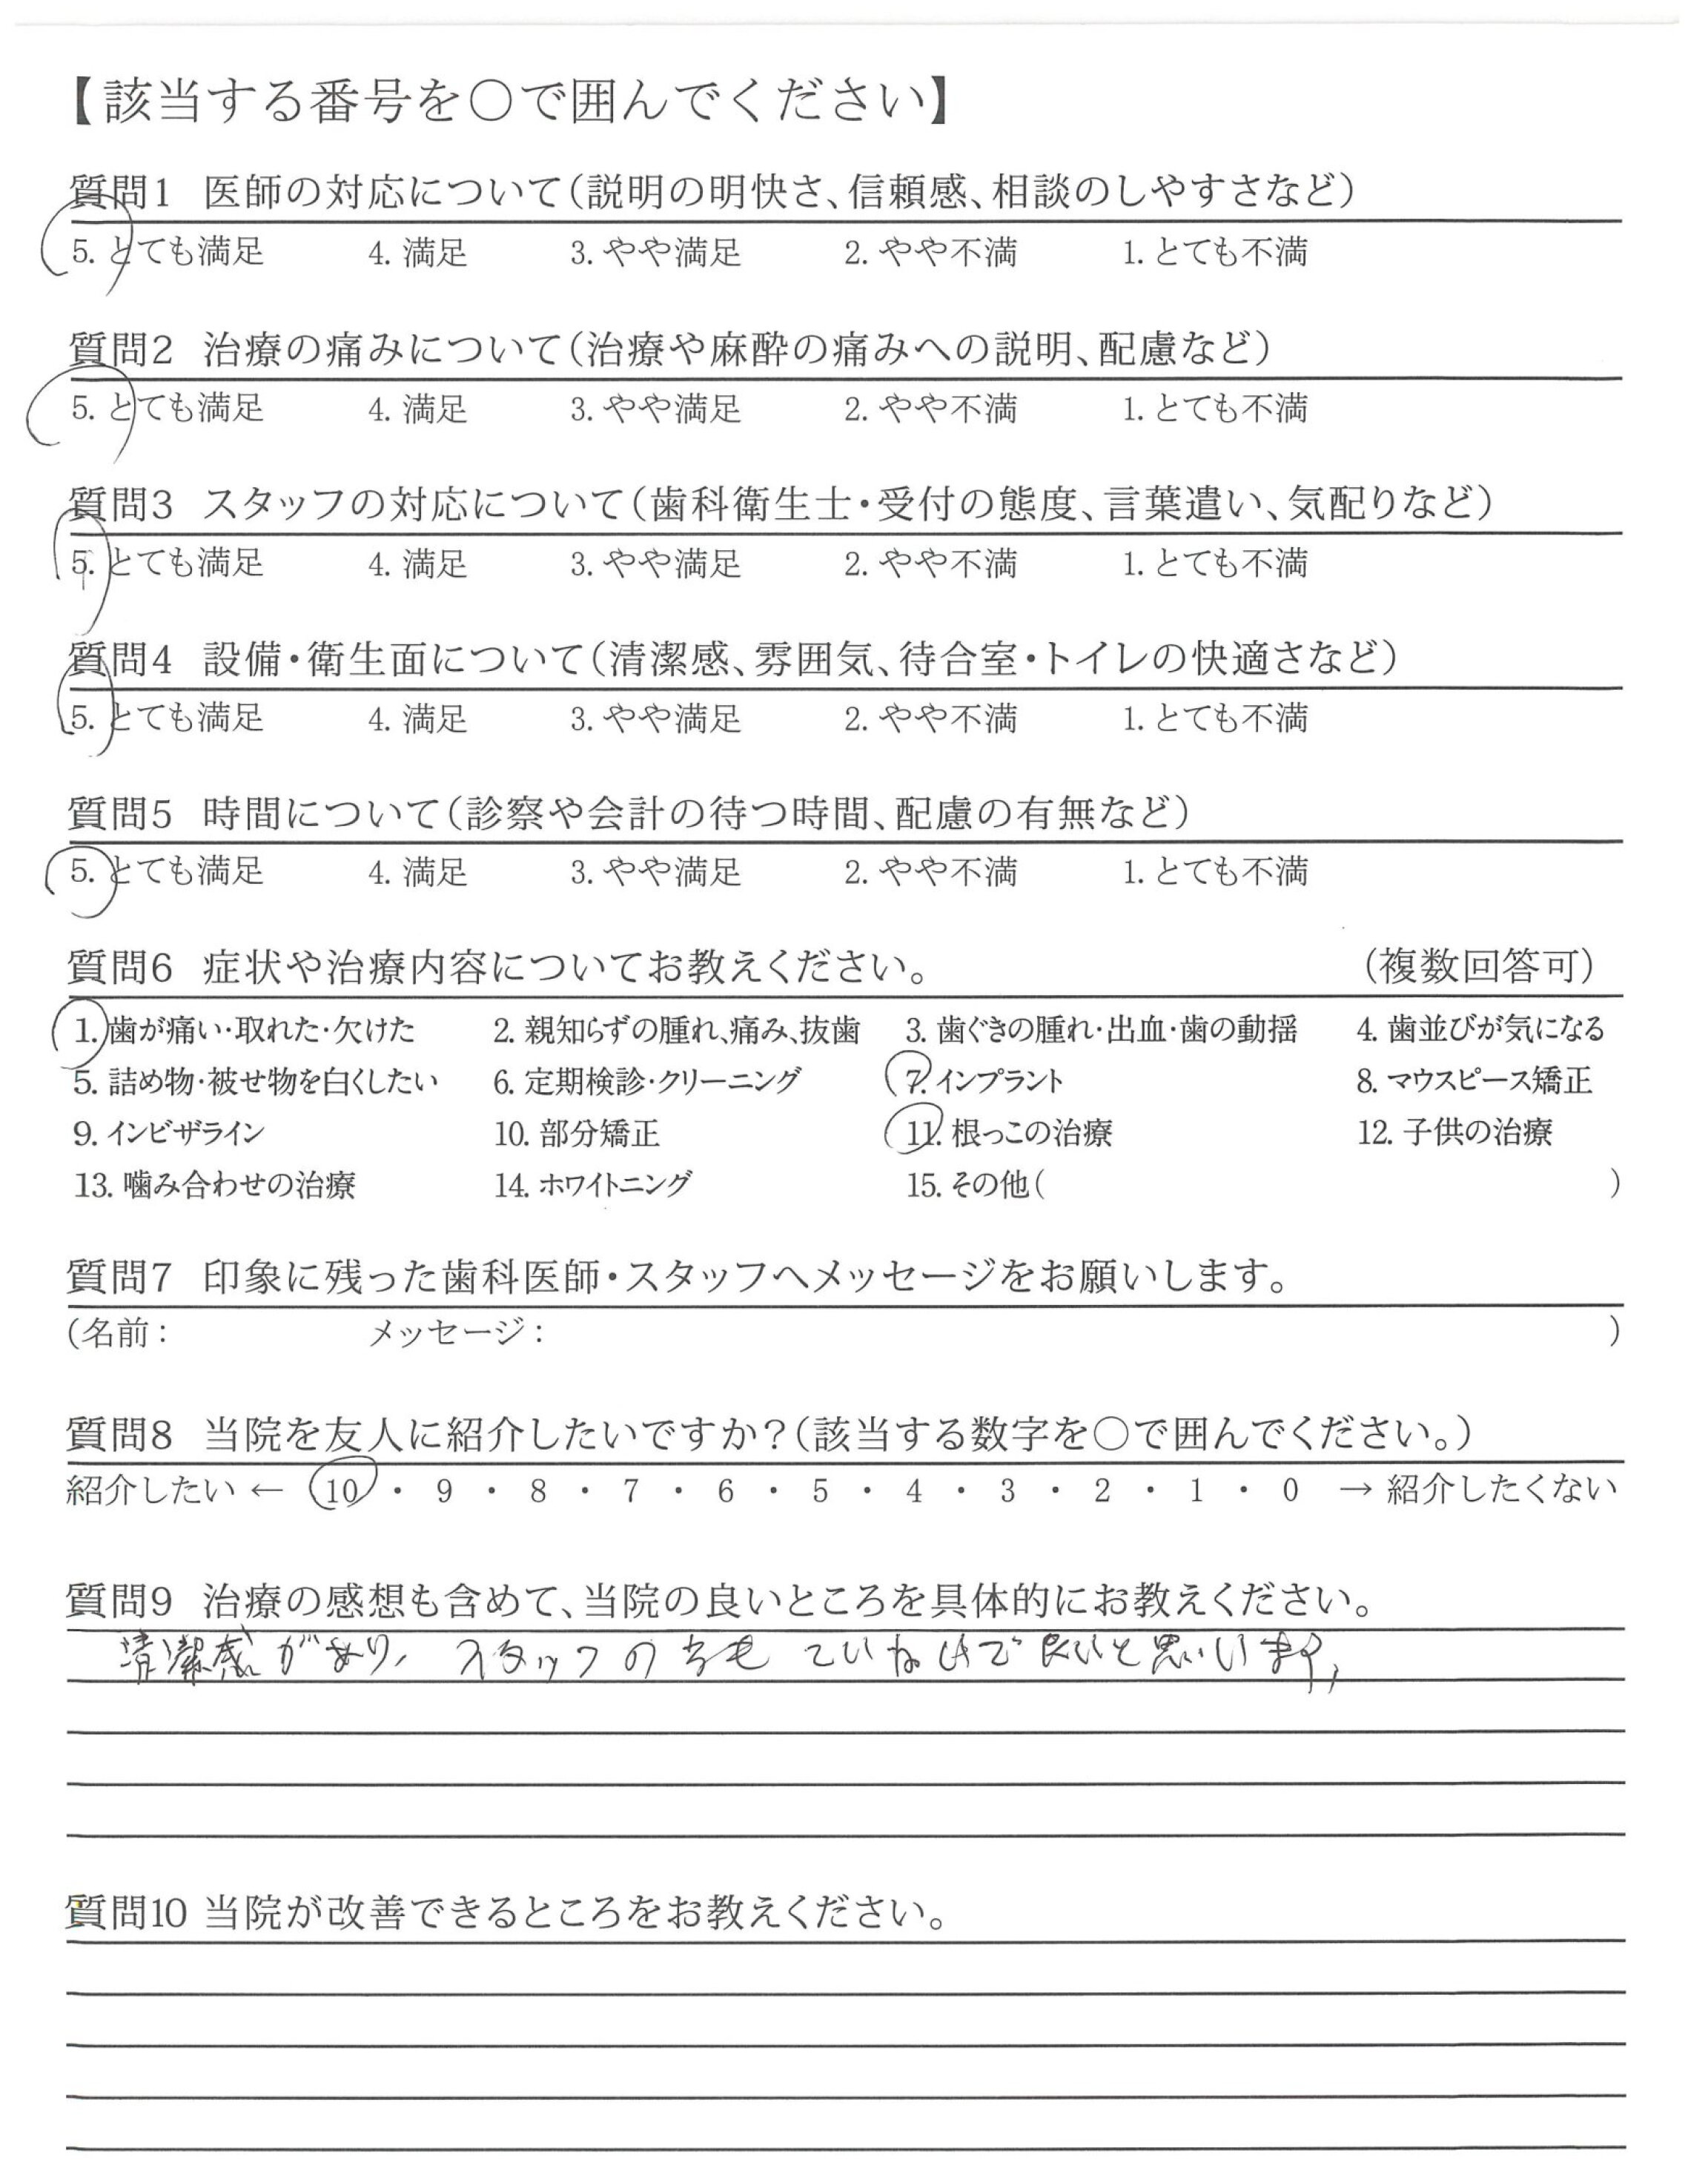 【該当する番号を○で囲んでください】
質問1 医師の対応について(説明の明快さ、信頼感、相談のしやすさなど)
5. とても満足 4. 満足 3. やや満足 2. やや不満 1. とても不満
質問2 治療の痛みについて(治療や麻酔の痛みへの説明、配慮など)
5. とても満足 4. 満足 3. やや満足 2. やや不満 1. とても不満
質問3 スタッフの対応について(歯科衛生士・受付の態度、言葉遣い、気配りなど)
5. とても満足 4. 満足 3. やや満足 2. やや不満 1. とても不満
質問4 設備・衛生面について(清潔感、雰囲気、待合室・トイレの快適さなど)
5. とても満足 4. 満足 3. やや満足 2. やや不満 1. とても不満
質問5 時間について(診察や会計の待つ時間、配慮の有無など)
5. とても満足 4. 満足 3. やや満足 2. やや不満 1. とても不満
質問6 症状や治療内容についてお教えください。 (複数回答可)
1. 歯が痛い・取れた・欠けた 2. 親知らずの腫れ、痛み、抜歯 3. 歯ぐきの腫れ・出血・歯の動揺 4. 歯並びが気になる
5. 詰め物・被せ物を白くしたい 6. 定期検診・クリーニング 7. インプラント 8. マウスピース矯正
9. インビザライン 10. 部分矯正 11. 根っこの治療 12. 子供の治療
13. 噛み合わせの治療 14. ホワイトニング 15. その他( )
質問7 印象に残った歯科医師・スタッフへメッセージをお願いします。
(名前: メッセージ: )
質問8 当院を友人に紹介したいですか?(該当する数字を○で囲んでください。)
紹介したい ← 10 ・ 9 ・ 8 ・ 7 ・ 6 ・ 5 ・ 4 ・ 3 ・ 2 ・ 1 ・ 0 → 紹介したくない
質問9 治療の感想も含めて、当院の良いところを具体的にお教えください。
清潔感があり、スタッフの方もていねいで良いと思います。
質問10 当院が改善できるところをお教えください。